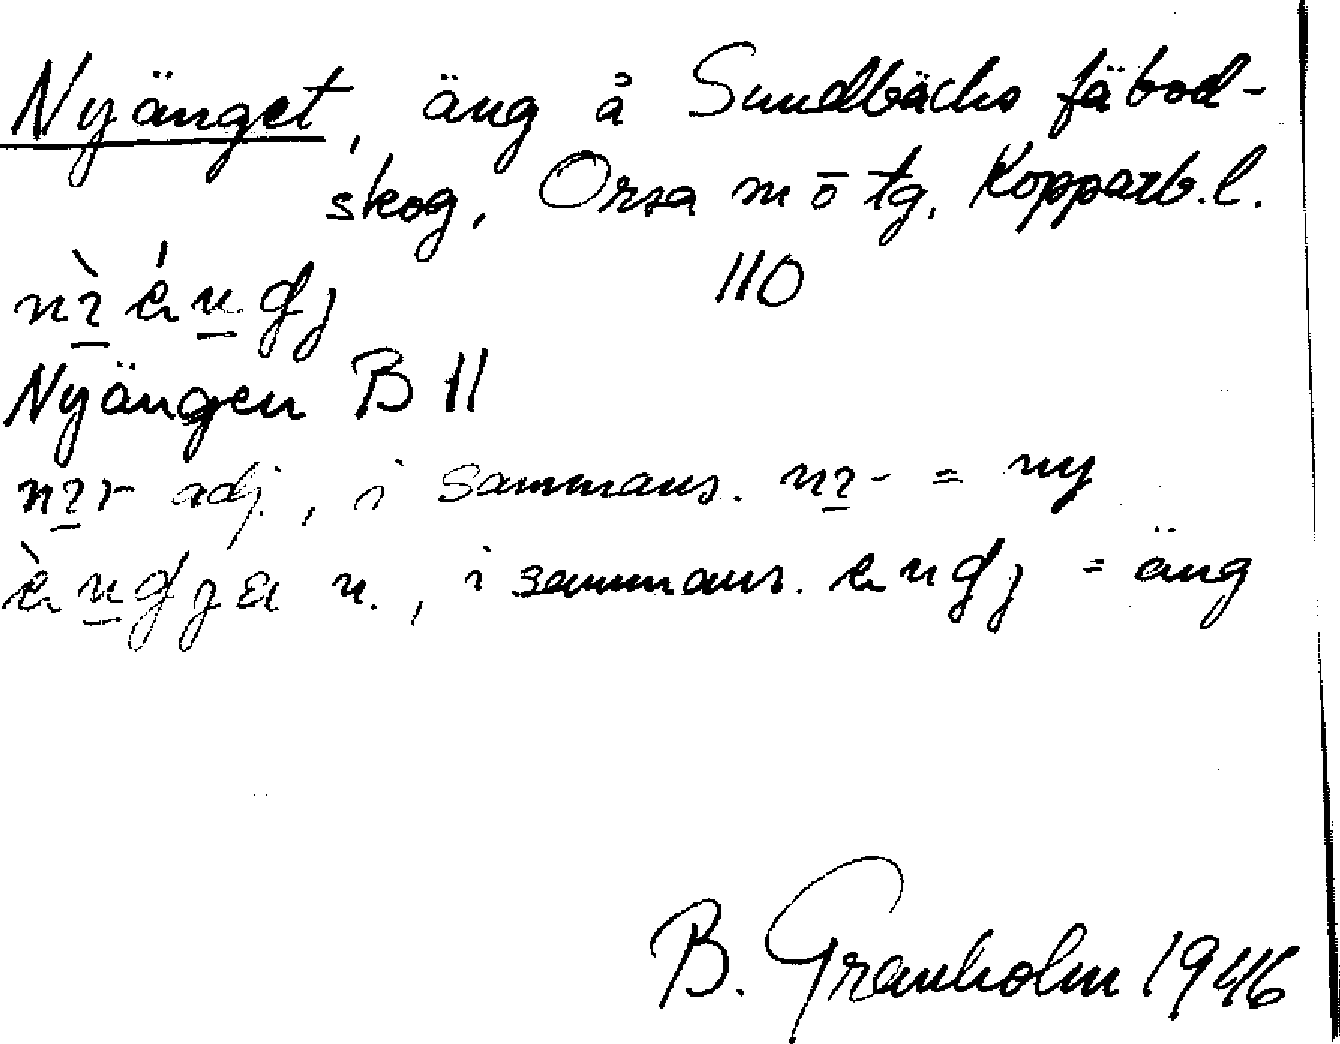 Nyänget, äng å Sundbäcks fäbod-
skog, Orsa m o tg, Kopparb. l.
110
Nyängen B 11
adj., i sammans. = ny
n., i sammans. = äng
B. Granholm 1946